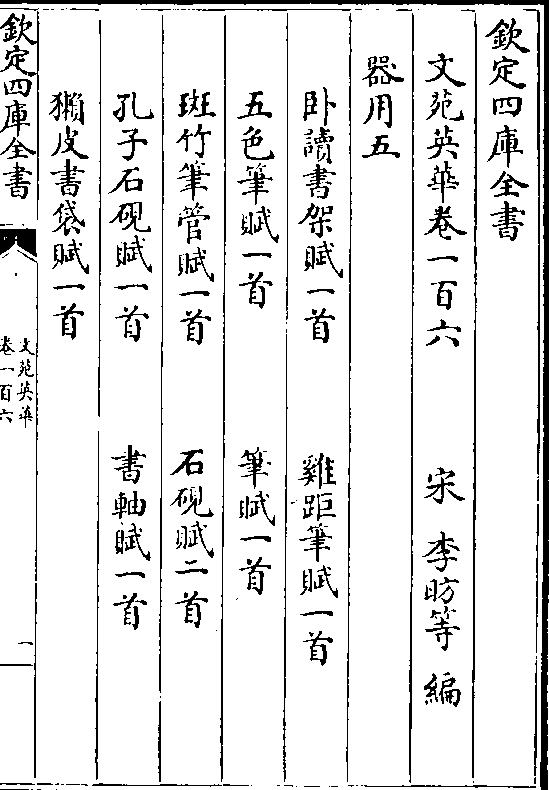 欽定四庫全書
文苑英華卷一百六　宋　李昉等　編
器用五
卧讀書架賦一首　雞距筆賦一首
五色筆賦一首　筆賦一首
斑竹筆管賦一首　石硯賦二首
孔子石硯賦一首　書軸賦一首
獺皮書袋賦一首
欽定四庫全書
文苑英華
卷一百六
一